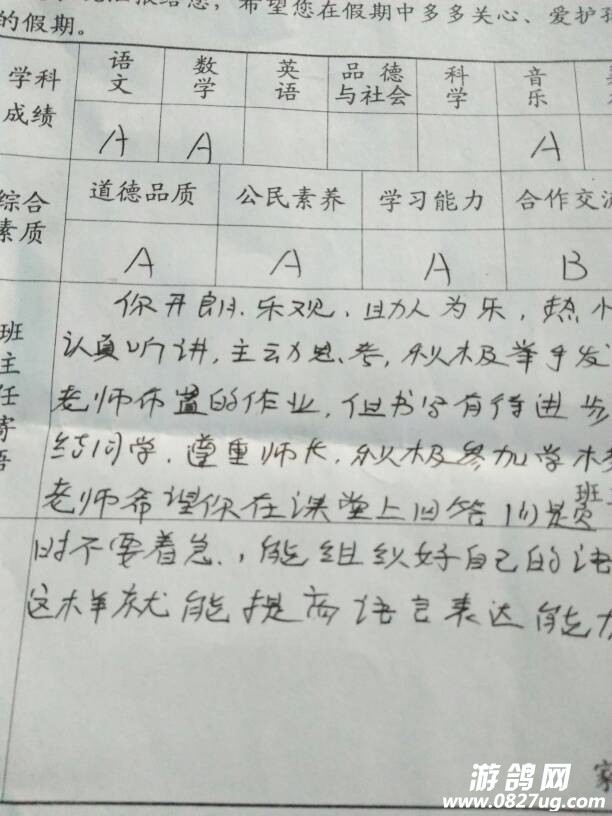 希望您在假期中多多关心、爱护
的假期。
学科成绩 语文 数学 英语 品德与社会 科学 音乐
A A A
综合素质 道德品质 公民素养 学习能力 合作交流
A A A B
班主任寄语
你开朗、乐观、助人为乐，热
认真听讲，主动思考，积极举手发
老师布置的作业，但书写有待进步
结同学，遵重师长，积极参加学校
老师希望你在课堂上回答问题
班
时不要着急，能组织好自己的语
这样就能提高语言表达能力
家
游鸽网
www.0827ug.com